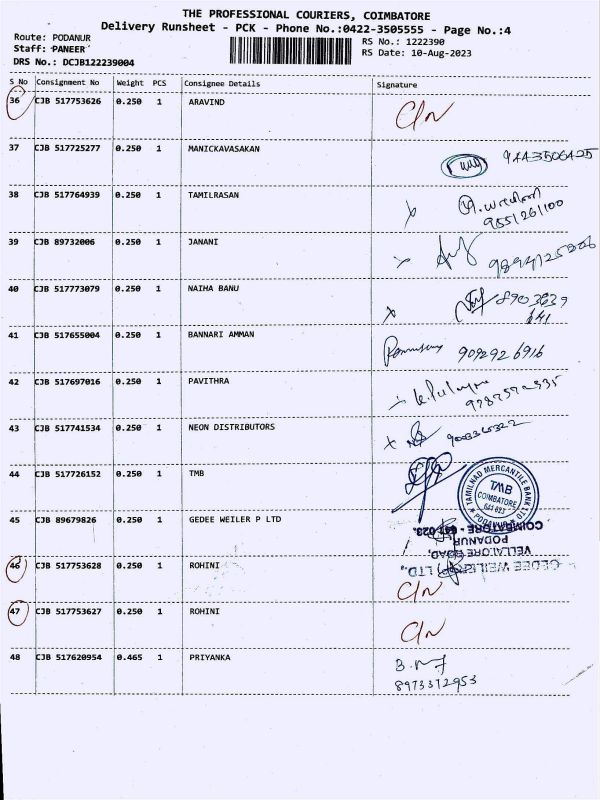 THE PROFESSIONAL COURIERS, COIMBATORE
Delivery Runsheet - PCK - Phone No.:0422-3505555 - Page No.:4
Route: PODANUR
RS No.: 1222390
Staff: PANEER
RS Date: 10-Aug-2023
DRS No.: DCJB122239004
S No Consignment No Weight PCS Consignee Details Signature
36 CJB 517753626 0.250 1 ARAVIND
37 CJB 517725277 0.250 1 MANICKAVASAKAN
38 CJB 517764939 0.250 1 TAMILRASAN
9551261100
39 CJB 89732006 0.250 1 JANANI
40 CJB 517773079 0.250 1 NAIHA BANU
8903639
641
41 CJB 517655004 0.250 1 BANNARI AMMAN
9092926916
42 CJB 517697016 0.250 1 PAVITHRA
43 CJB 517741534 0.250 1 NEON DISTRIBUTORS
44 CJB 517726152 0.250 1 TMB
TAMILNAD MERCANTILE BANK LTD
TMB
COIMBATORE
641 023
PODANUR
45 CJB 89679826 0.250 1 GEDEE WEILER P LTD
GEDEE WEILER P LTD.,
VELLALORE ROAD,
PODANUR
COIMBATORE - 641 023.
46 CJB 517753628 0.250 1 ROHINI
47 CJB 517753627 0.250 1 ROHINI
48 CJB 517620954 0.465 1 PRIYANKA
8973372953